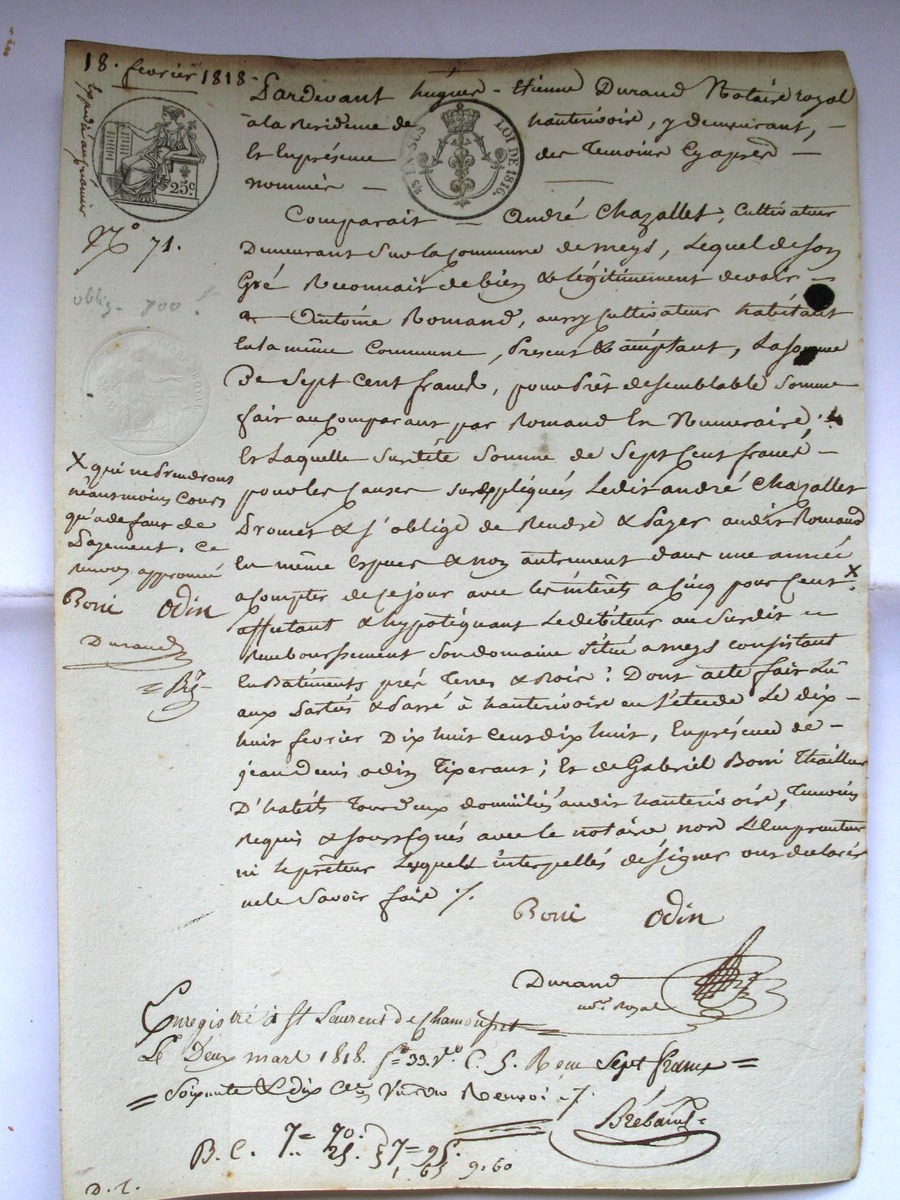 18. fevrier 1818.
Expédié au premier
25 C
25 CEN. SUS
LOI DE 1816.
Pardevant hugues - Etienne Durand Notaire royal
à la Residence de hauterivoire, y demeurant, -
Et En présence des Temoins Cy après -
nommés -
N.o 71.
oblig. 700 f
Comparait - André Chazallet, Cultivateur
Demeurant Sur la Commune de meys, Lequel de Son
Gré Reconnait de bien & légitimement devoir -
a - Antoine Romand, aussy Cultivateur habitant
En la même Commune, Present & acceptant, La Somme
De Sept Cent francs, pour Prêt de semblable Somme
fait au Comparant par Romand En Numeraire,
Et Laquelle Surdite Somme de Sept Cent francs -
pour les Causes Surappliquées Ledit andré Chazallet
Promet & s'oblige de Rendre & Payer audit Romand
En même Especes & non autrement dans une année
a Compter de ce jour avec les intérêts a Cinq pour Cent X
affectant & hypotéquant Le débiteur au Surdit -
Remboursement Son domaine Situé a meys Consistant
En Batiments près Terres & Bois : Dont acte fait Lû
aux Parties & Passé à hauterivoire en l'étude Le dix -
huit fevrier Dix huit Cent dix huit, En présence de -
jean denis odin Tixerant ; Et de Gabriel Boni Thailleur
D'habits Tous deux domiciliés audit hauterivoire, Temoins
Requis & Soussignés avec le notaire non L'Emprunteur
ni le prêteur Lesquels interpellés de signer ont declarés
ne le Savoir faire /.
X qui ne Prendrons
néansmoins Cours
qu'a defaut de
Payement. Ce
renvoi approuvé
Boni Odin
Durand
Boni Odin
Durand
not. Royal
Enregistré à St Laurent de Chamousset
Le Deux mart 1818. f.o 33. v.o C. 5. Reçu Sept francs =
= Soixante & dix Ces. Un Renvoi /.
Brébant
B. C. 7 = 70. 25. } 7 = 95.
1. 65 9. 60
D. C.